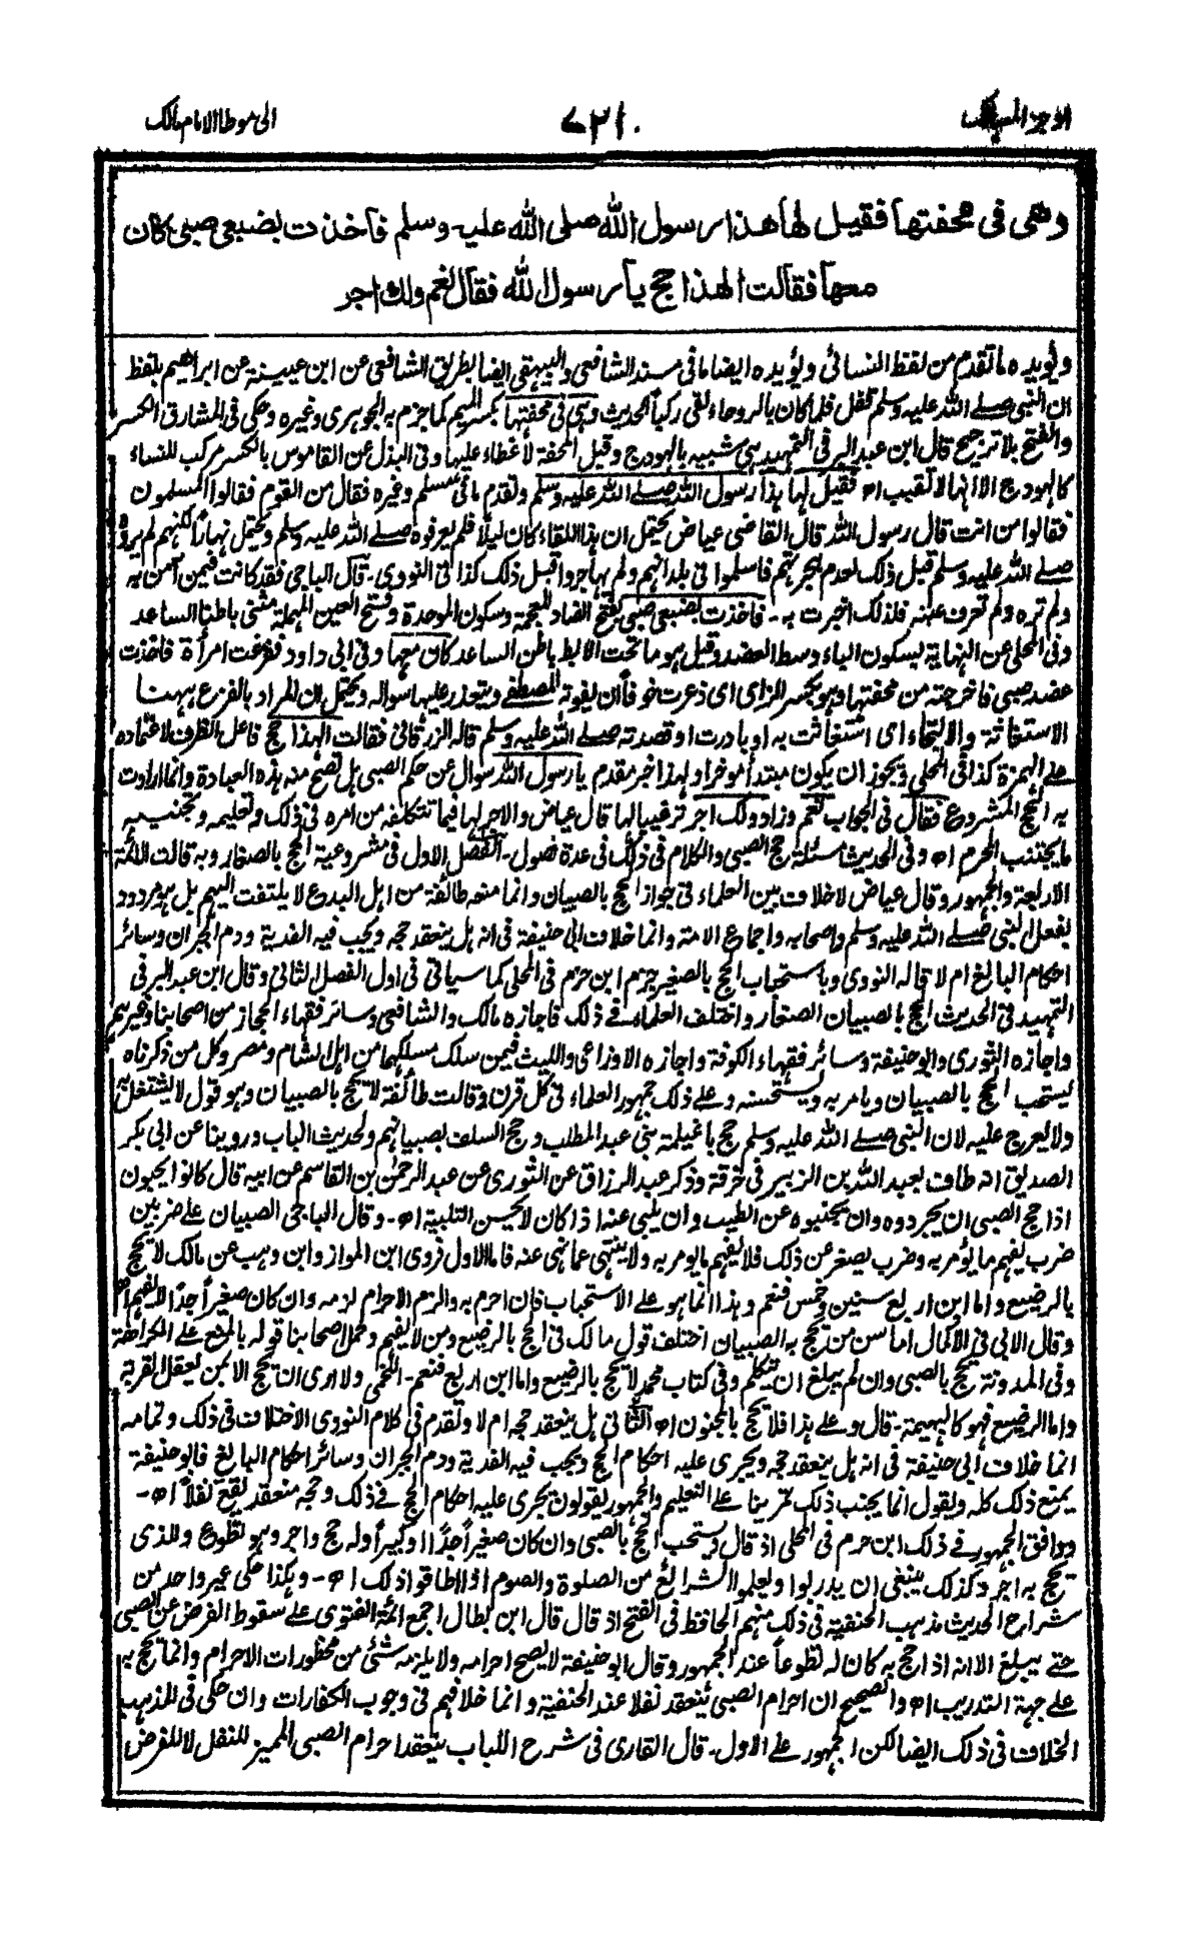 اوجز المسالك
٧٢١٠
الى موطا الامام مالك
وهى فى محفتها فقيل لها هذا رسول الله صلى الله عليه وسلم فاخذت بضبعى صبى كان
معها فقالت الهذا حج يا رسول الله فقال نعم ولك اجر
ويؤيده ما تقدم من لفظ النسائى ويؤيده ايضا ما فى مسند الشافعى والبيهقى ايضا بطريق الشافعى عن ابن عيينة عن ابراهيم بلفظ
ان النبى صلے الله عليه وسلم قفل فلما كان بالروحاء لقى ركبا الحديث وهى فى محفتها بكسر الميم كما جزم به الجوهرى وغيره وحكى فى المشارق الكسر
والفتح بلا ترجيح قال ابن عبد البر فى التمهيد هى شبيه بالهودج وقيل المحفة لا غطاء عليها وفى البذل عن القاموس بالكسر مركب للنساء
كالهودج الا انها لا تقبب اھ فقيل لها هذا رسول الله صلے الله عليه وسلم وتقدم ما فى مسلم وغيره فقال من القوم فقالوا المسلمون
فقالوا من انت قال رسول الله قال القاضى عياض يحتمل ان هذا اللقاء كان ليلا فلم يعرفوه صلے الله عليه وسلم ويحتمل نهارا لكنهم لم يروه
صلے الله عليه وسلم قبل ذلك لعدم هجرتهم فاسلموا فى بلدانهم ولم يهاجروا قبل ذلك كذا فى النووى - قال الباجى فقد كانت فيمن آمن به
ولم تره ولم تعرف عينه فلذلك اخبرت به - فاخذت بضبعى صبى بفتح الضاد المعجمة وسكون الموحدة وفتح العين المهملة مثنى باطنا الساعد
وفى المحلى عن النهاية بسكون الباء وسط العضد وقيل هو ما تحت الابط باطن الساعد كان معها وفى ابى داود ففزعت امرأة فاخذت
عضد صبى فاخرجته من محفتها وهو بكسر الزاى اى ذعرت خوفا ان يفوته المصطفے ويتعذر عليها سواله ويحتمل ان المراد بالفزع ههنا
الاستغاثة والالتجاء اى استغاثت به او بادرت او قصدته صلے الله عليه وسلم قاله الزرقانى فقالت الهذا حج فاعل الظرف لاعتماده
علے الهمزة كذا فى المحلى ويجوز ان يكون مبتدأ موخرا ولهذا خبر مقدم يا رسول الله سوال عن حكم الصبى هل تصح منه هذه العبادة وانما ارادت
به الحج المشروع فقال فى الجواب نعم وزاد ولك اجر ترغيبا لها قال عياض والاجر لها فيما تتكلفه من امره فى ذلك وتعليمه وتجنيبه
ما يجتنب المحرم اھ وفى الحديث مسئلة حج الصبى والكلام فى ذلك فى عدة فصول - الفصل الاول فى مشروعية الحج بالصغار وبه قالت الائمة
الاربعة والجمهور وقال عياض لا خلاف بين العلماء فى جواز الحج بالصبيان وانما منعه طائفة من اهل البدع لا يلتفت اليهم بل هو مردود
بفعل النبى صلے الله عليه وسلم واصحابه واجماع الامة وانما خلاف ابى حنيفة فى انه هل ينعقد حجه ويجب فيه الفدية ودم الجبران وسائر
احكام البالغ ام لا قاله النووى وباستحباب الحج بالصغير جزم ابن حزم فى المحلى كما سياتى فى اول الفصل الثانى وقال ابن عبد البر فى
التمهيد فى الحديث الحج بالصبيان الصغار واختلف العلماء فے ذلك فاجازه مالك والشافعى وسائر فقهاء الحجاز من اصحابنا وغيرهم
واجازه الثورى وابو حنيفة وسائر فقهاء الكوفة واجازه الاوزاعى والليث فيمن سلك مسلكهما من اهل الشام ومصر وكل من ذكرناه
يستحب الحج بالصبيان ويامر به ويستحسنه وعلے ذلك جمهور العلماء فى كل قرن وقالت طائفة لا يحج بالصبيان وهو قول لا يشتغل به
ولا يعرج عليه لان النبى صلے الله عليه وسلم حج باغيلمة بنى عبد المطلب وحج السلف بصبيانهم ولحديث الباب وروينا عن ابى بكر
الصديق انه طاف بعبد الله بن الزبير فى خرقة وذكر عبد الرزاق عن الثورى عن عبد الرحمٰن بن القاسم عن ابيه قال كانوا يحبون
اذا حج الصبى ان يجردوه وان يجنبوه عن الطيب وان يلبى عنه اذا كان لا يحسن التلبية اھ - وقال الباجى الصبيان علے ضربين
ضرب يفهم ما يؤمر به وضرب يصغر عن ذلك فلا يفهم ما يومر به ولا ينتهى عما نهى عنه فاما الاول فروى ابن المواز وابن وهب عن مالك لا يحج
بالرضيع واما ابن اربع سنين وخمس فنعم وهذا انما هو على الاستحباب فان احرم به والزم الاحرام لزمه وان كان صغيرا جدا لا يفهم اھ
وقال الابى فى الاكمال اما سن من يحج به الصبيان اختلف قول مالك فى الحج بالرضيع ومن لا يفهم وحمل اصحابنا قوله بالمنع على الكراهة
وفى المدونة يحج بالصبى وان لم يبلغ ان يتكلم وفى كتاب محمد لا يحج بالرضيع واما ابن اربع فنعم - اللخمى ولا ارى ان يحج الا بمن يعقل القربة
واما الرضيع فهو كالبهيمة - قال وعلے هذا فلا يحج بالمجنون اھ الثانى هل ينعقد حجه ام لا وتقدم فى كلام النووى الاختلاف فى ذلك وتمامه
انما خلاف ابى حنيفة فى انه هل ينعقد حجه ويجرى عليه احكام الحج ويجب فيه الفدية ودم الجبران وسائر احكام البالغ فابو حنيفة
يمنع ذلك كله ويقول انما يجنب ذلك تمرينا علے التعليم والجمهور يقولون يجرى عليه احكام الحج فے ذلك وحجه منعقد يقع نفلا اھ -
ووافق الجمهور فے ذلك ابن حزم فى المحلى اذ قال ويستحب الحج بالصبى وان كان صغيرا جدا او كبيرا وله حج واجر وهو تطوع وللذى
يحج به اجر وكذلك ينبغى ان يدربوا ويعلموا الشرائع من الصلوة والصوم اذا اطاقوا ذلك اھ - وهكذا حكى غير واحد من
شراح الحديث مذهب الحنفية فى ذلك منهم الحافظ فى الفتح اذ قال قال ابن بطال اجمع ائمة الفتوى علے سقوط الفرض عن الصبى
حتے يبلغ الا انه اذا حج به كان له تطوعا عند الجمهور وقال ابو حنيفة لا يصح احرامه ولا يلزمه شئى من محظورات الاحرام وانما يحج به
علے جهة التدريب اھ والصحيح ان احرام الصبى ينعقد نفلا عند الحنفية وانما خلافهم فى وجوب الكفارات وان حكى فى المذهب
الخلاف فى ذلك ايضا لكن الجمهور علے الاول - قال القارى فى شرح اللباب ينعقد احرام الصبى المميز للنفل لا للفرض